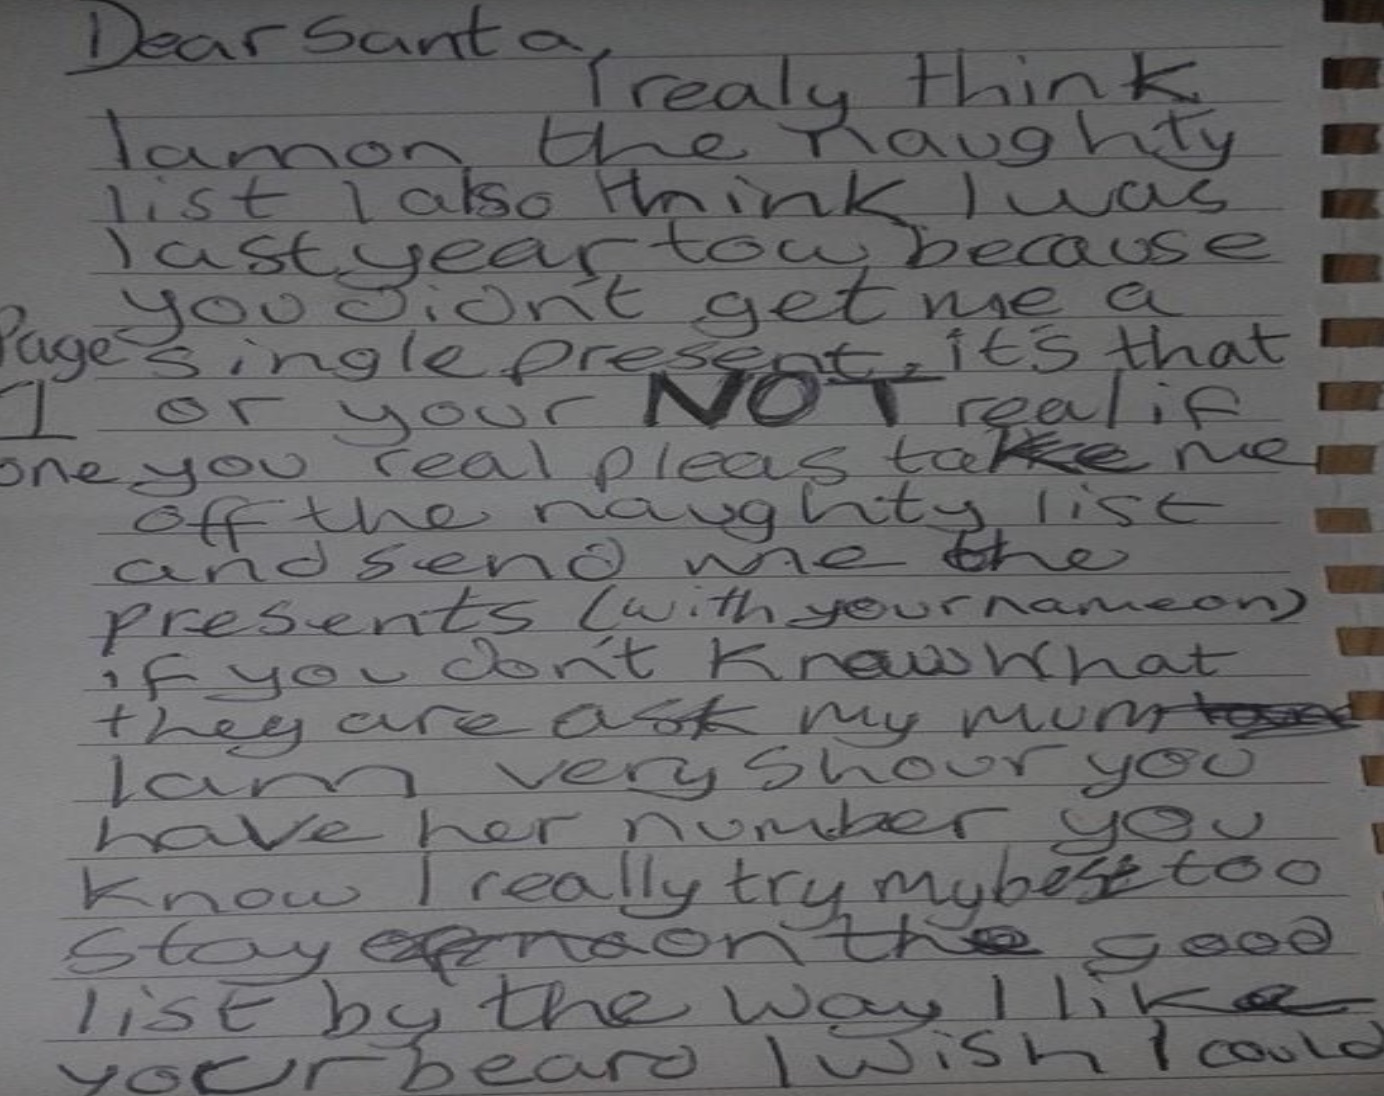 Dear Santa,
I realy think
I am on the naughty
list I also think I was
last year tow because
you didn't get me a
Page single present, it's that
1 or your NOT real if
one you real pleas take me
off the naughty list
and send me the
presents (with your name on)
if you don't know what
they are ask my mum
I am very shour you
have her number you
know I really try my best too
stay on the good
list by the way I like
your beard I wish I could